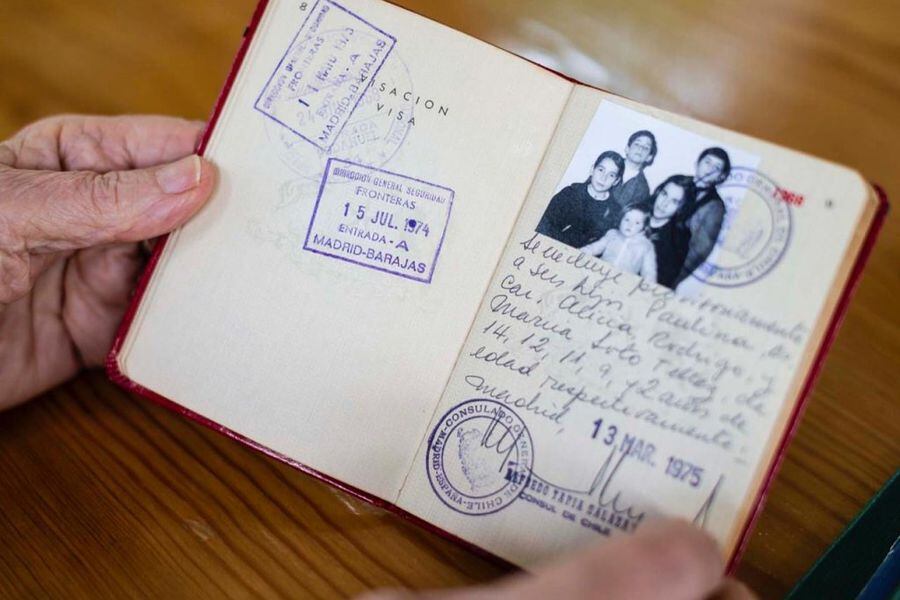 8
DIRECCION GENERAL SEGURIDAD
FRONTERAS
MADRID-BARAJAS
VISACION
VISA
DIRECCION GENERAL SEGURIDAD
FRONTERAS
15 JUL. 1974
ENTRADA-A
MADRID-BARAJAS
9
a sus hijos Paulina,
Car, Alicia, Rodrigo, y
Maria Soto Tellez, de
14, 12, 11, 9, y 2 años de
edad respectivamente.-
Madrid,
13 MAR. 1975
CONSULADO GENERAL DE CHILE
MADRID-ESPAÑA
ALFREDO TAPIA SALAZAR
CONSUL DE CHILE